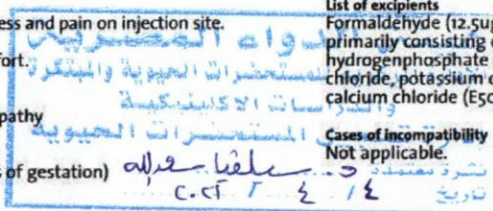 ess and pain on injection site.
fort.
pathy
s of gestation)
List of excipients
Formaldehyde (12.5µg
primarily consisting
hydrogenphosphate
chloride, potassium
calcium chloride (E50
Cases of incompatibility
Not applicable.
الدواء المصرية
للمستحضرات الحيوية والمبتكرة
والدراسات الاكلينيكية
المستحضرات الحيوية
نشرة معتمدة د.
تاريخ ١٤ / ٤ / ٢٠٢٢